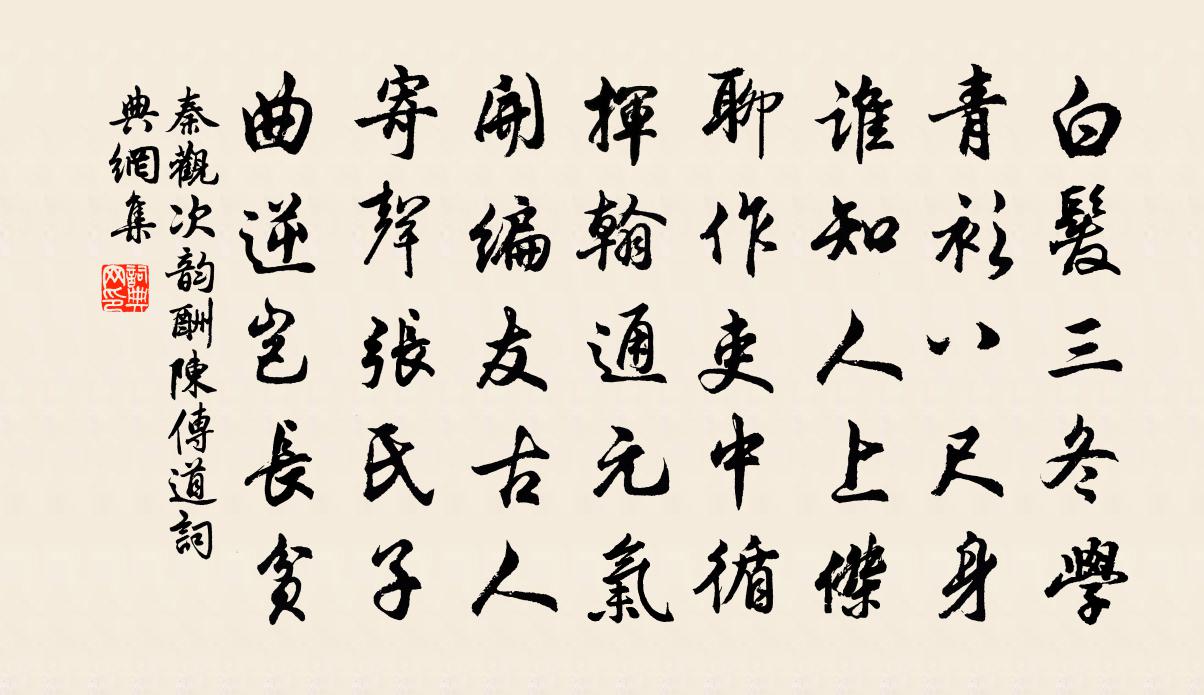 白髮三冬學
青衫八尺身
誰知人上傑
聊作吏中循
揮翰通元氣
開編友古人
寄聲張氏子
曲逆豈長貧
秦觀次韵酬陳傳道詞
典網集
詞典网印